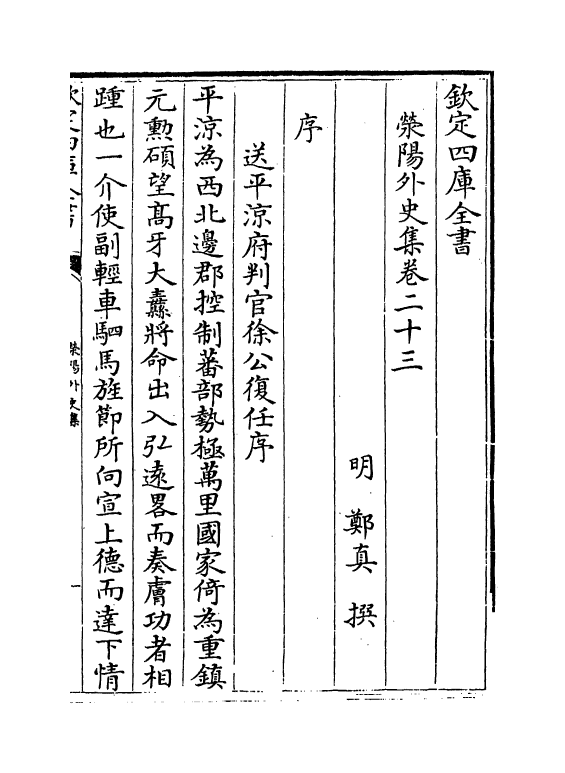 欽定四庫全書
滎陽外史集卷二十三
明 鄭真 撰
序
送平涼府判官徐公復任序
平涼為西北邊郡控制蕃部勢極萬里國家倚為重鎮
元勲碩望髙牙大纛將命出入弘逺畧而奏膚功者相
踵也一介使副輕車駟馬旌節所向宣上德而達下情
欽定四庫全書
滎陽外史集
一